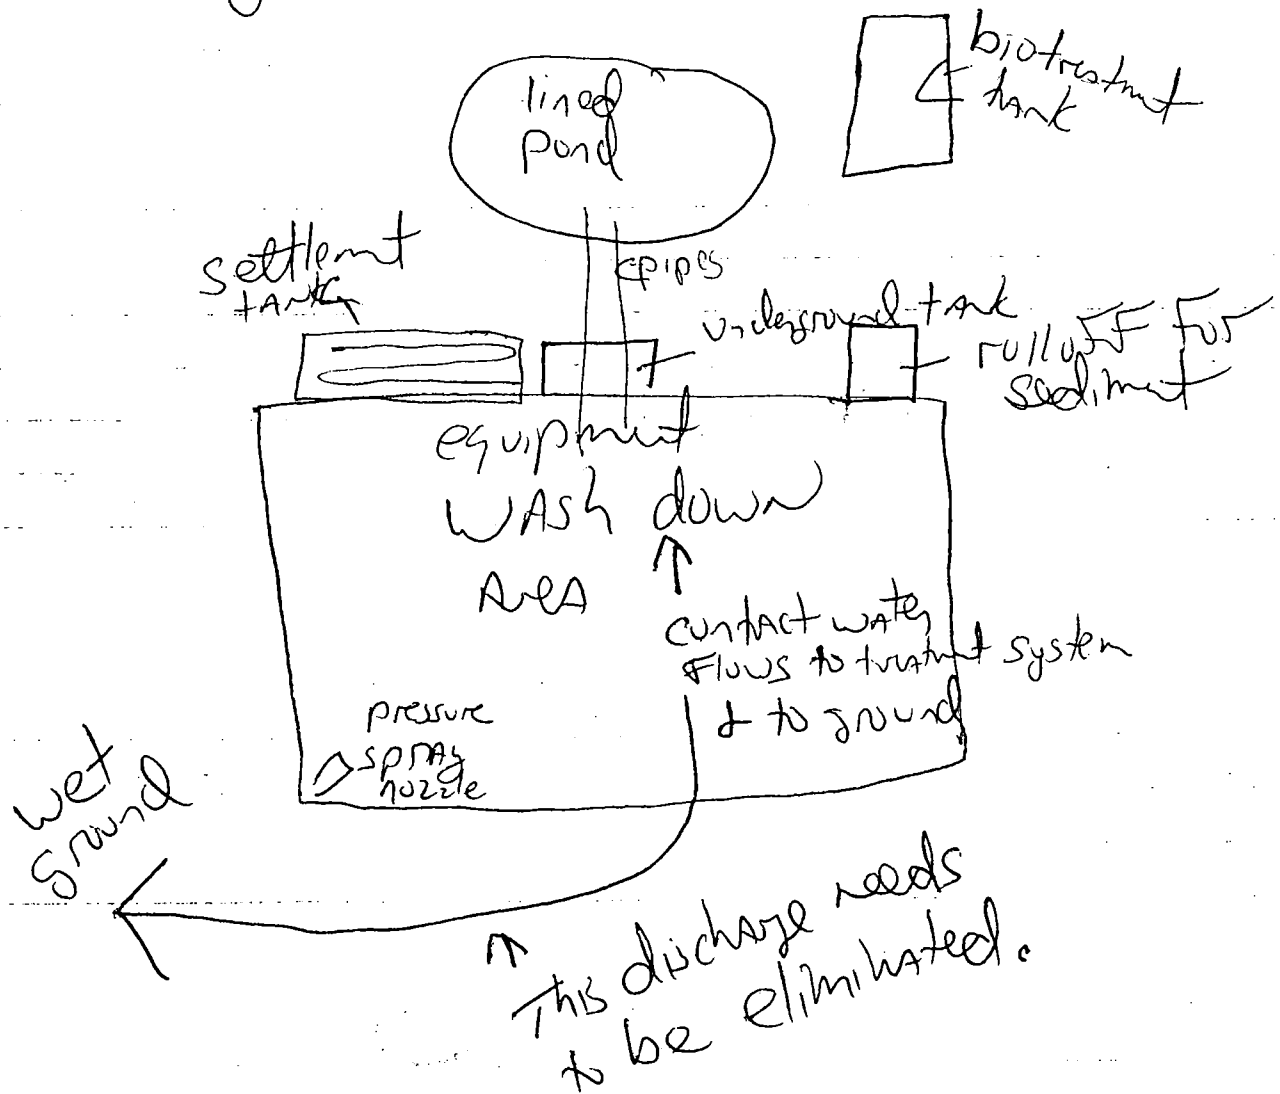 lined
pond
biotreatment
tank
settlement
tank
pipes
underground tank
rolloff for
sediment
equipment
wash down
area
contact water
flows to treatment system
& to ground
pressure
spray
nozzle
wet
ground
This discharge needs
to be eliminated.